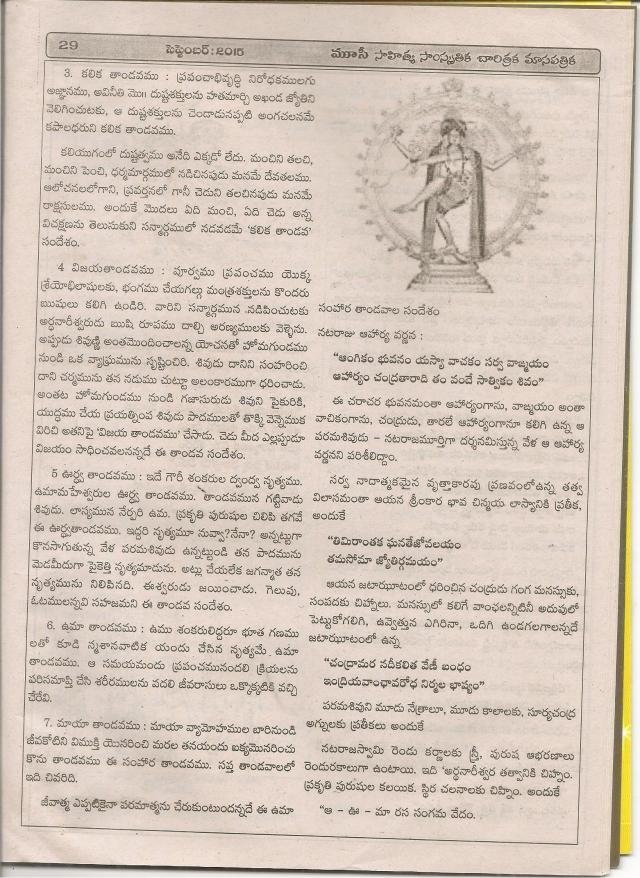 29
సెప్టెంబర్ : 2015
మూసీ సాహిత్య సాంస్కృతిక చారిత్రక మాసపత్రిక
3. కలిక తాండవము : ప్రపంచాభివృద్ధి నిరోధకములగు
అజ్ఞానము, అవినీతి మొ॥ దుష్టశక్తులను హతమార్చి అఖండ జ్యోతిని
వెలిగించుటకు, ఆ దుష్టశక్తులను చెండాడునప్పటి అంగచలనమే
కపాలధరుని కలిక తాండవము.
కలియుగంలో దుష్టత్వము అనేది ఎక్కడో లేదు. మంచిని తలచి,
మంచిని పెంచి, ధర్మమార్గములో నడిచినపుడు మనమే దేవతలము.
ఆలోచనలలోగాని, ప్రవర్తనలో గానీ చెడుని తలచినపుడు మనమే
రాక్షసులము. అందుకే మొదలు ఏది మంచి, ఏది చెడు అన్న
విచక్షణను తెలుసుకుని సన్మార్గములో నడవడమే ‘కలిక తాండవ’
సందేశం.
4 విజయతాండవము : పూర్వము ప్రపంచము యొక్క
శ్రేయోభిలాషులకు, భంగము చేయగల్గు మంత్రశక్తులను కొందరు
ఋషులు కలిగి ఉండిరి. వారిని సన్మార్గమున నడిపించుటకు
అర్ధనారీశ్వరుడు ఋషి రూపము దాల్చి అరణ్యములకు వెళ్ళెను.
అప్పుడు శివుణ్ణి అంతమొందించాలన్న యోచనతో హోమగుండము
నుండి ఒక వ్యాఘ్రమును సృష్టించిరి. శివుడు దానిని సంహరించి
దాని చర్మమును తన నడుము చుట్టూ అలంకారముగా ధరించాడు.
అంతట హోమగుండము నుండి గజాసురుడు శివుని పైకురికి,
యుద్ధము చేయ ప్రయత్నింప శివుడు పాదములతో తొక్కి వెన్నెముక
విరిచి అతనిపై ‘విజయ తాండవము’ చేసాడు. చెడు మీద ఎల్లప్పుడూ
విజయం సాధించవలసనన్నదే ఈ తాండవ సందేశం.
5 ఊర్ధ్వ తాండవము : ఇదే గౌరీ శంకరుల ద్వంద్వ నృత్యము.
ఉమామహేశ్వరుల ఊర్ధ్వ తాండవము. తాండవమున గట్టివాడు
శివుడు. లాస్యమున నేర్పరి ఉమ. ప్రకృతి పురుషుల చిలిపి తగవే
ఈ ఊర్ధ్వతాండవము. ఇద్దరి నృత్యమూ నువ్వా?నేనా? అన్నట్టుగా
కొనసాగుతున్న వేళ పరమశివుడు ఉన్నట్టుండి తన పాదమును
మెడమీదుగా పైకెత్తి నృత్యమాడును. అట్లు చేయలేక జగన్మాత తన
నృత్యమును నిలిపినది. ఈశ్వరుడు జయించాడు. గెలుపు,
ఓటములన్నవి సహజమని ఈ తాండవ సందేశం.
6. ఉమా తాండవము : ఉము శంకరులిద్దరూ భూత గణము
లతో కూడి స్మశానవాటిక యందు చేసిన నృత్యమే ఉమా
తాండవము. ఆ సమయమందు ప్రపంచమునందలి క్రియలను
పరిసమాప్తి చేసి శరీరములను వదలి జీవరాసులు ఒక్కొక్కటికి వచ్చి
చేరేవి.
7. మాయా తాండవము : మాయా వ్యామోహముల బారినుండి
జీవకోటిని విముక్తి యొనరించి మరల తనయందు ఐక్యమొనరించు
కొను తాండవము ఈ సంహార తాండవము. సప్త తాండవాలలో
ఇది చివరిది.
జీవాత్మ ఎప్పటికైనా పరమాత్మను చేరుకుంటుందన్నదే ఈ ఉమా
సంహార తాండవాల సందేశం
నటరాజు ఆహార్య వర్ణన :
“ఆంగికం భువనం యస్యా వాచకం సర్వ వాఙ్మయం
ఆహార్యం చంద్రతారాది తం వందే సాత్వికం శివం”
ఈ చరాచర భువనమంతా ఆహార్యంగాను, వాఙ్మయం అంతా
వాచికంగాను, చంద్రుడు, తారలే ఆహార్యంగానూ కలిగి ఉన్న ఆ
పరమశివుడు – నటరాజమూర్తిగా దర్శనమిస్తున్న వేళ ఆ ఆహార్య
వర్ణనని పరిశీలిద్దాం.
సర్వ నాదాత్మకమైన వృత్తాకారపు ప్రణవంలోఉన్న తత్వ
విలాసమంతా ఆయన శ్రీంకార భావ చిన్మయ లాస్యానికి ప్రతీక,
అందుకే
“తిమిరాంతక ఘనతేజోవలయం
తమసోమా జ్యోతిర్గమయం”
ఆయన జటాఝూటంలో ధరించిన చంద్రుడు గంగ మనస్సుకు,
సంపదకు చిహ్నాలు. మనస్సులో కలిగే వాంఛలన్నిటినీ అదుపులో
పెట్టుకోగలిగి, ఉవ్వెత్తున ఎగిరినా, ఒదిగి ఉండగలగాలన్నదే
జటాఝూటంలో ఉన్న
“చంద్రామర నదీకలిత వేణీ బంధం
ఇంద్రియవాంఛావరోధ నిర్మల భాష్యం”
పరమశివుని మూడు నేత్రాలూ, మూడు కాలాలకు, సూర్యచంద్ర
అగ్నులకు ప్రతీకలు అందుకే
నటరాజస్వామి రెండు కర్ణాలకు స్త్రీ, పురుష ఆభరణాలు
రెండురకాలుగా ఉంటాయి. ఇది ‘అర్ధనారీశ్వర తత్వానికి చిహ్నం.
ప్రకృతి పురుషుల కలయిక. స్థిర చలనాలకు చిహ్నం. అందుకే
“ఆ – ఊ – మా రస సంగమ వేదం.